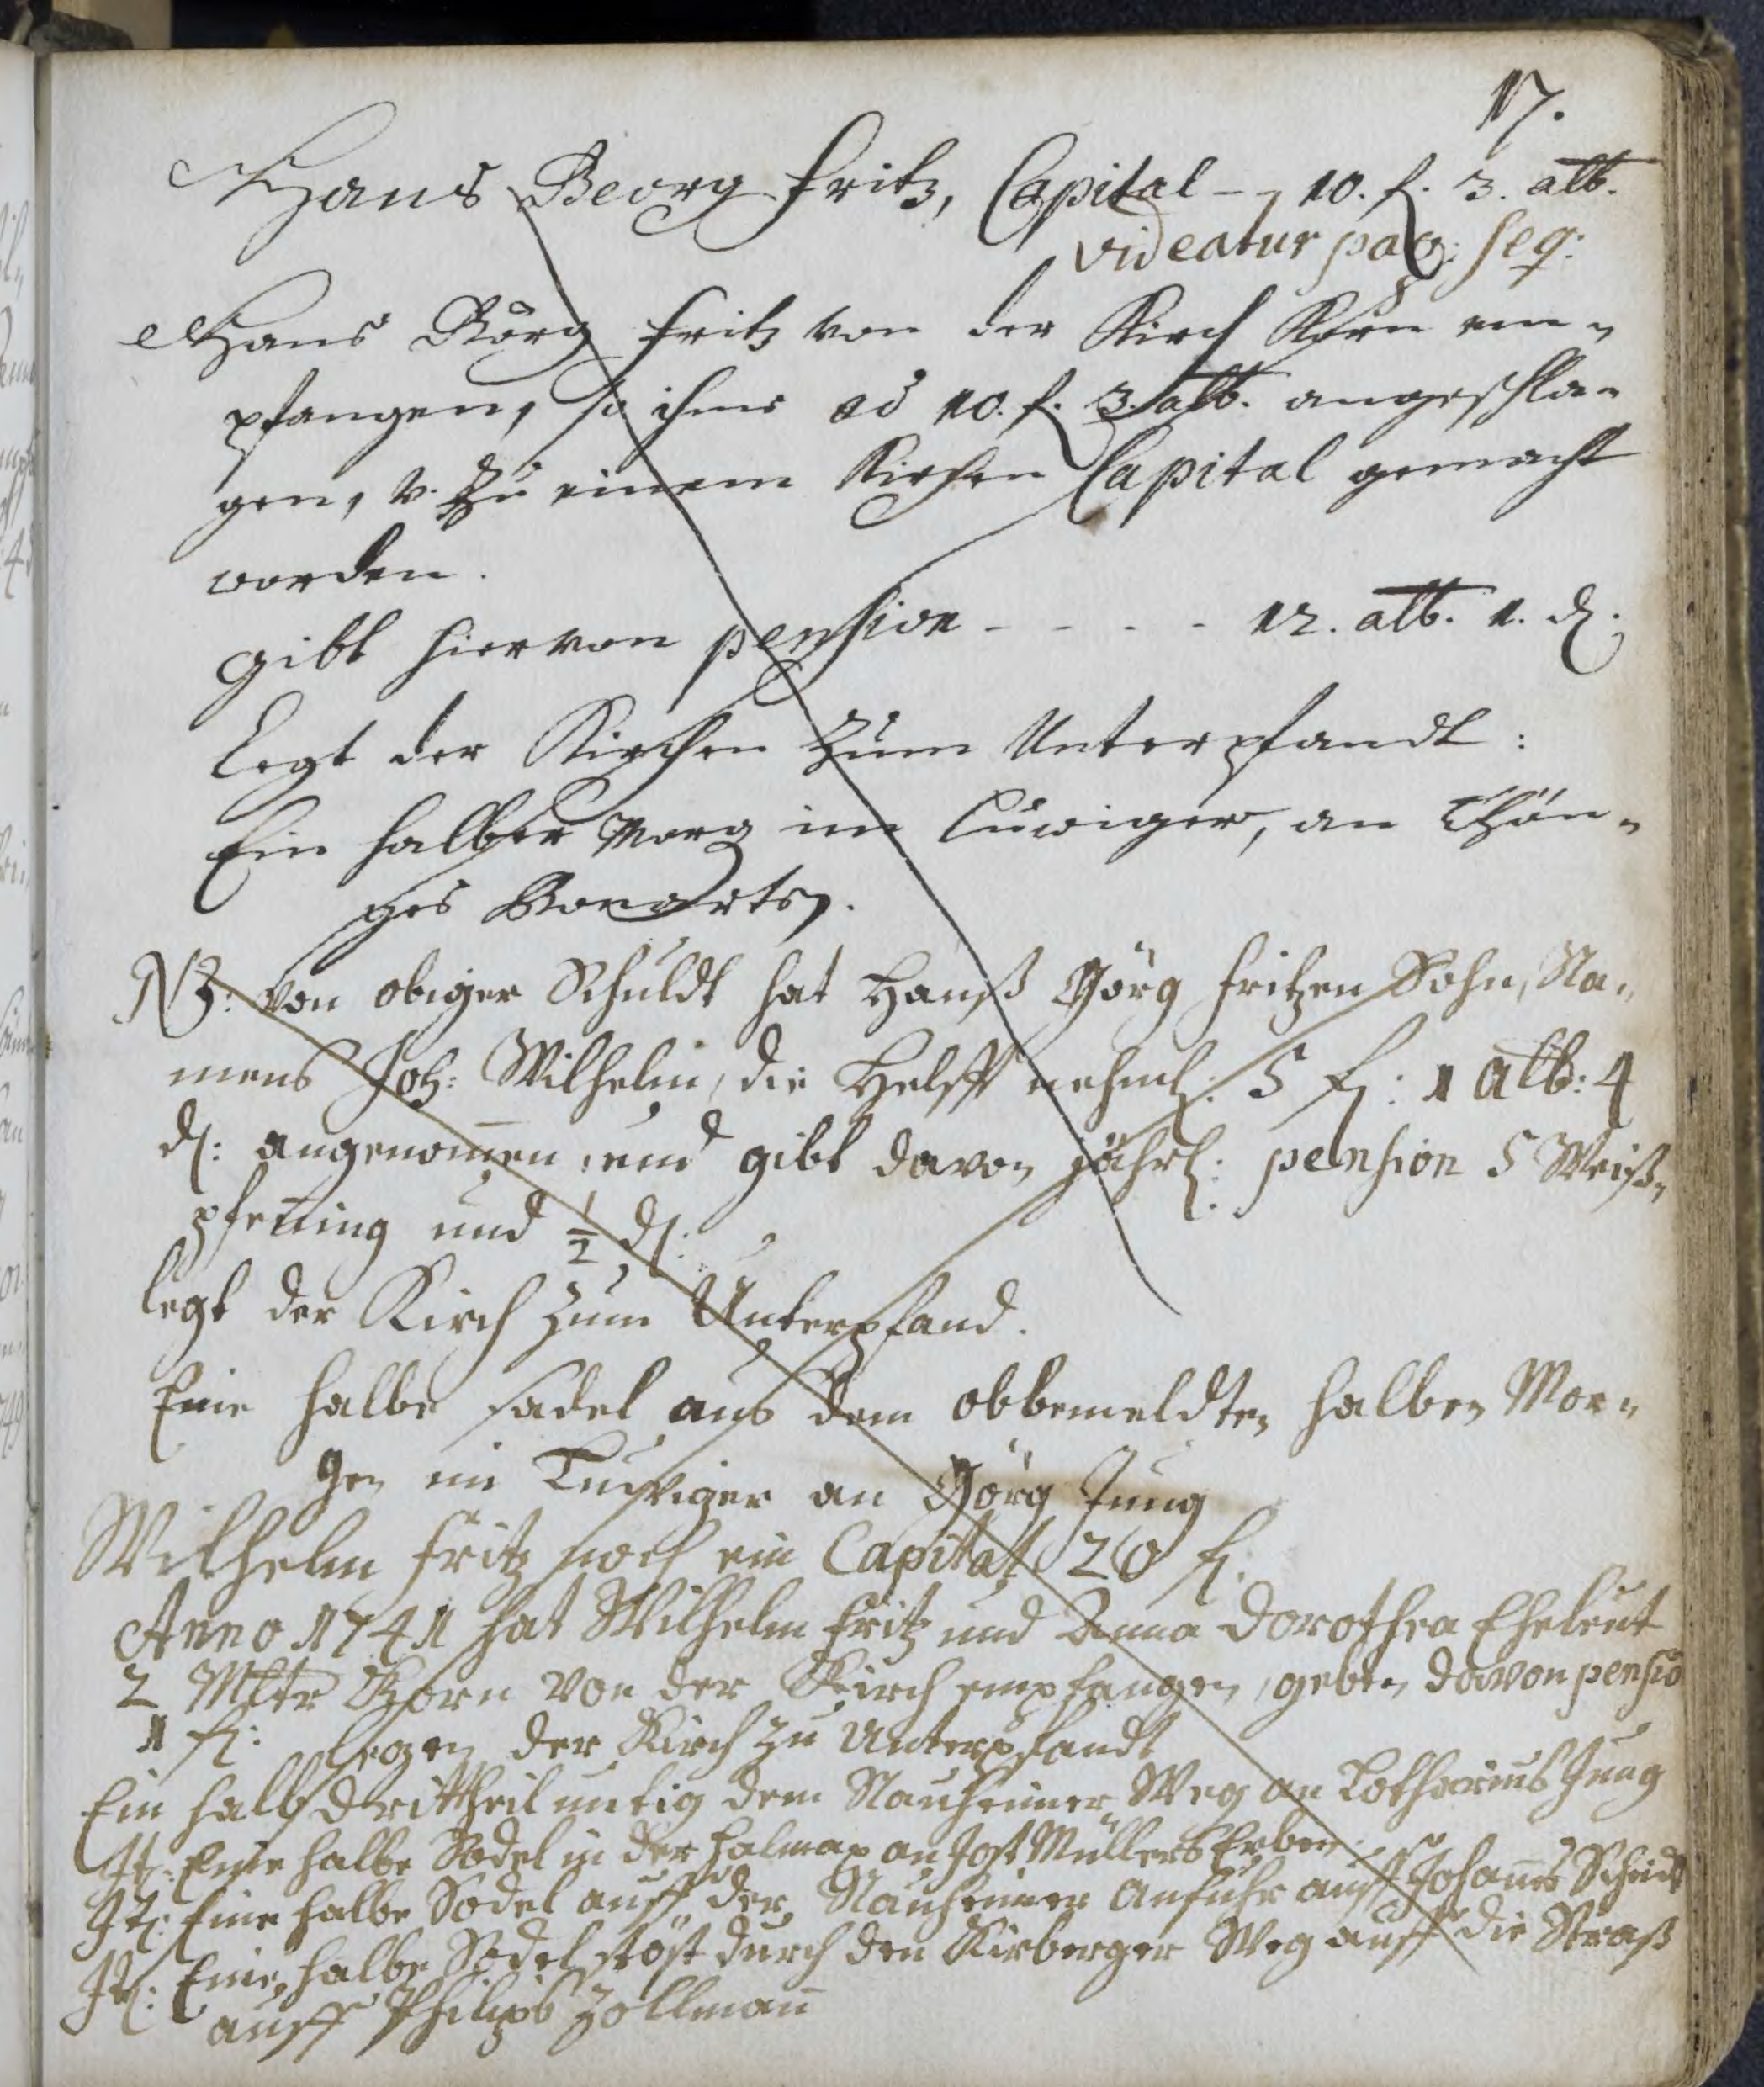 17.
Hans Georg Fritz, Capital - 10. f. 3. alb.
videatur pag: seq:
Hans Görg Fritz von der Kirch Korn em-
pfangen, so ihme ad 10. f. 3. alb. angeschla-
gen, v. zu einem Kirchen Capital gemacht
worden.
gibt hiervon pension - - - - 12. alb. 1. d.
Legt der Kirchen zum Unterpfandt:
Ein halber Morg im, an Thön-
ges
NB: von obiger Schuldt hat Hanß Görg Fritzen Sohn, Na-
mens Joh: Wilhelm, die Helfft nehml: 5 fl: 1 alb: 4
d: angenom̅en, und gibt davon jährl: pension 5 Weiß-
pfen̅ing und ½ d:
legt der Kirch zum Unterpfand.
Eine halbe sadel aus dem obbemeldten halben Mor-
gen im an Görg Jung
Wilhelm Fritz noch ein Capital 20 fl.
Anno 1741 hat Wilhelm Fritz und Anna Dorothea Eheleut
2 Mltr Korn von der Kirch empfangen, geben davon pensio
1 fl: legen der Kirch zu Unterpfandt
Ein halb dritttheil untig dem Nauheimer Weg an Lotharius Jung
It: Eine halbe Sodel in der an Jost Müllers Erben
It: Eine halbe Sodel auff der Nauheimer Anfuhr auff Johan̅es Scheid
It: Eine halbe Sodel stöst durch den Kirberger Weg auff die Straß
auff Philips Zollman̅